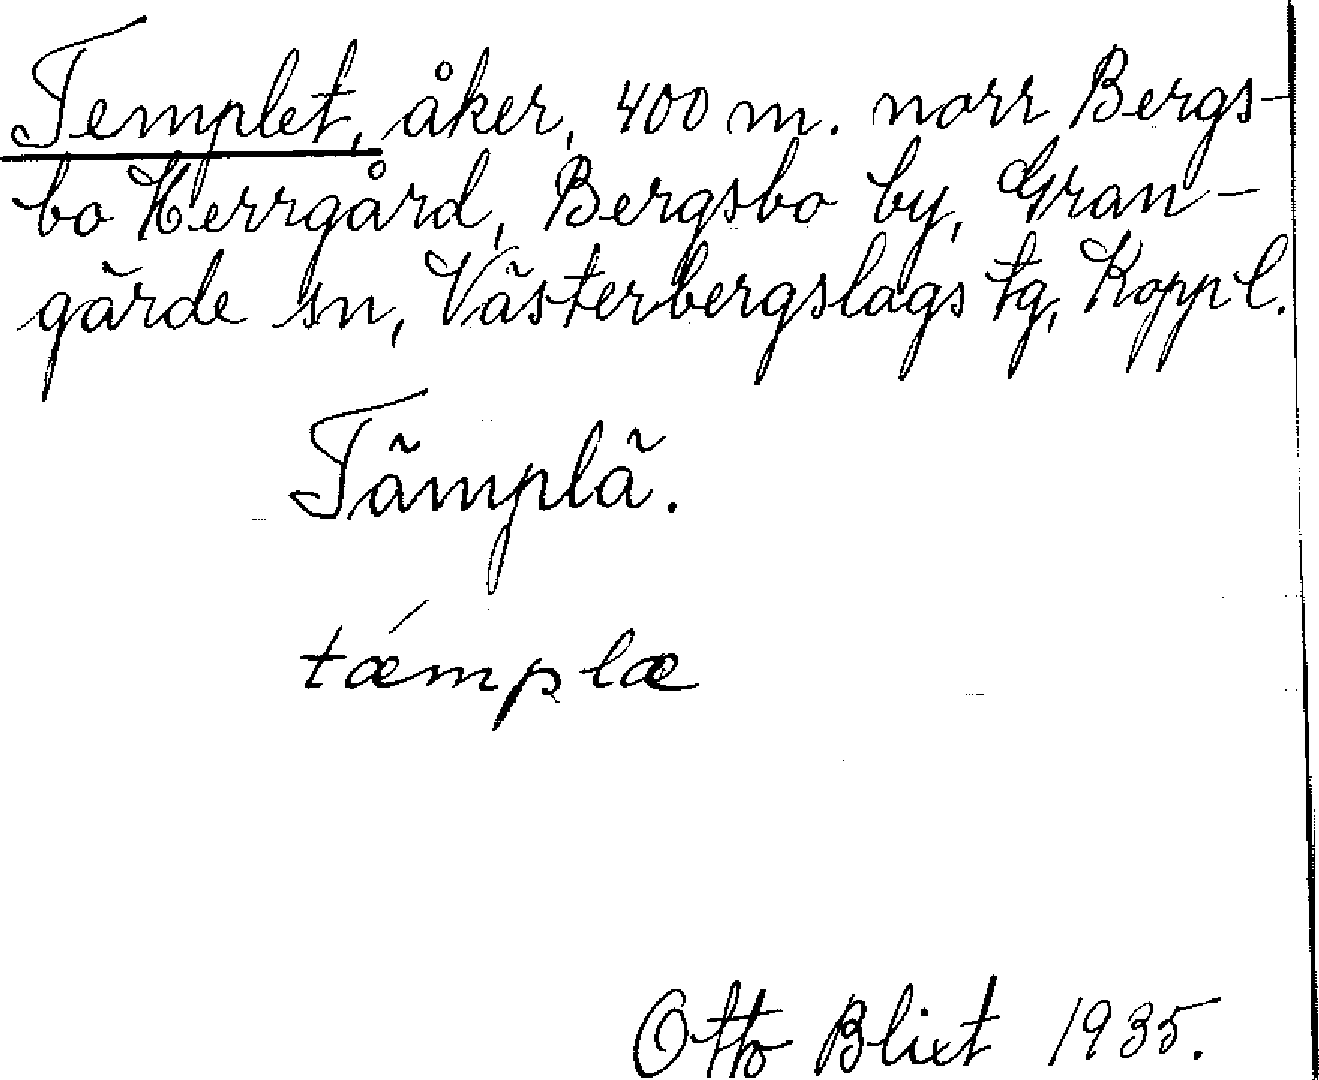 Templet, åker, 400 m. norr Bergs-
bo Herrgård, Bergsbo by, Gran-
gärde sn, Västerbergslags tg, Koppl.
Tämplä.
tǽmplæ
Otto Blixt 1935.